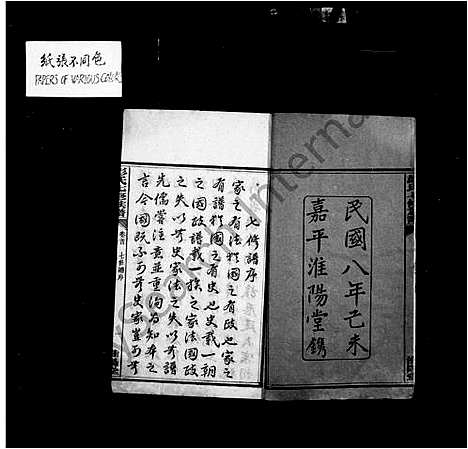 紙張不同色
PAPERS OF VARIOUS COLORS
民國八年己未
嘉平淮陽堂鐫
七修譜序
家之有法猶國之有政也家之
有譜猶國之有史也史載一朝
之國政譜載一族之家法國政
之失以無史家法之失以無譜
先儒嘗注意並重洵為知本之
言今國既不可無史家豈可無
卷首 七修譜序